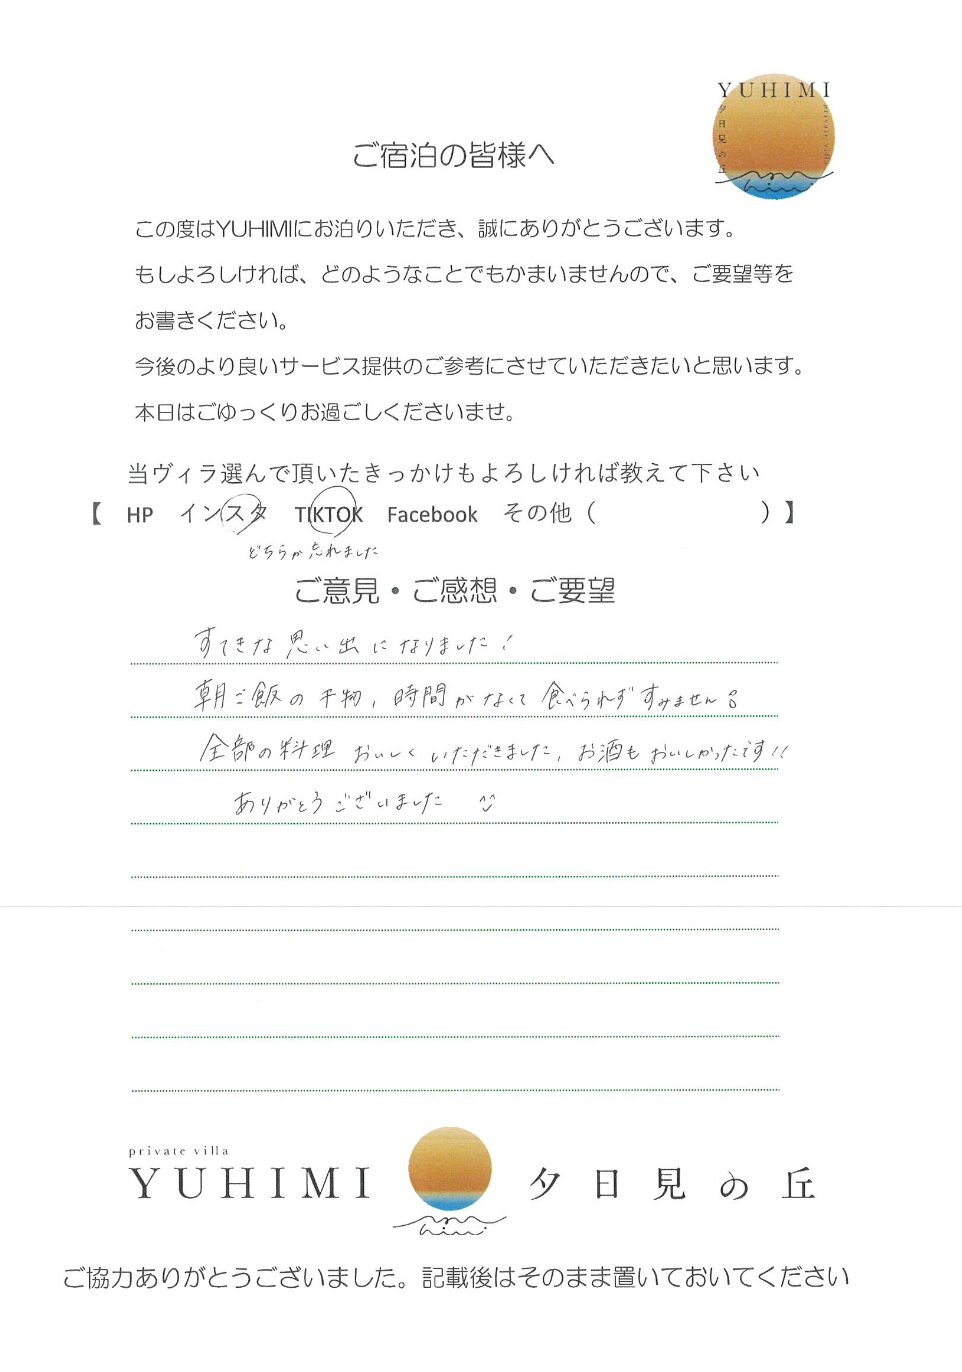 YUHIMI
夕日見の丘
private villa
ご宿泊の皆様へ
この度はYUHIMIにお泊りいただき、誠にありがとうございます。
もしよろしければ、どのようなことでもかまいませんので、ご要望等を
お書きください。
今後のより良いサービス提供のご参考にさせていただきたいと思います。
本日はごゆっくりお過ごしくださいませ。
当ヴィラ選んで頂いたきっかけもよろしければ教えて下さい
【 HP インスタ TIKTOK Facebook その他（ ）】
どちらか忘れました
ご意見・ご感想・ご要望
すてきな思い出になりました!
朝ご飯の干物, 時間がなくて食べられずすみません
全部の料理おいしくいただきました, お酒もおいしかったです!!
ありがとうございました
private villa
YUHIMI 夕日見の丘
ご協力ありがとうございました。記載後はそのまま置いておいてください